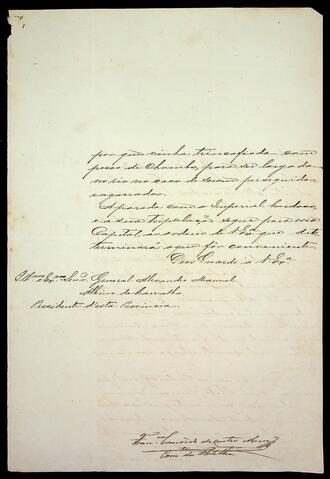 por que vinha trincafiada com
peso de Chumbo, para ser largada
no rio no caso de serem perseguidos
e agarrados.
A parada com o Imperial
e a sua tripulação segue para essa
Capital as ordens de V. Exª que de
terminará o que fôr conveniente.
Deos Guarde a V. Exª
Illmo e Exmo Snr. General Alexandre Manuel
Albino de Carvalho
Presidente d'esta Provincia.
Franco de Castro